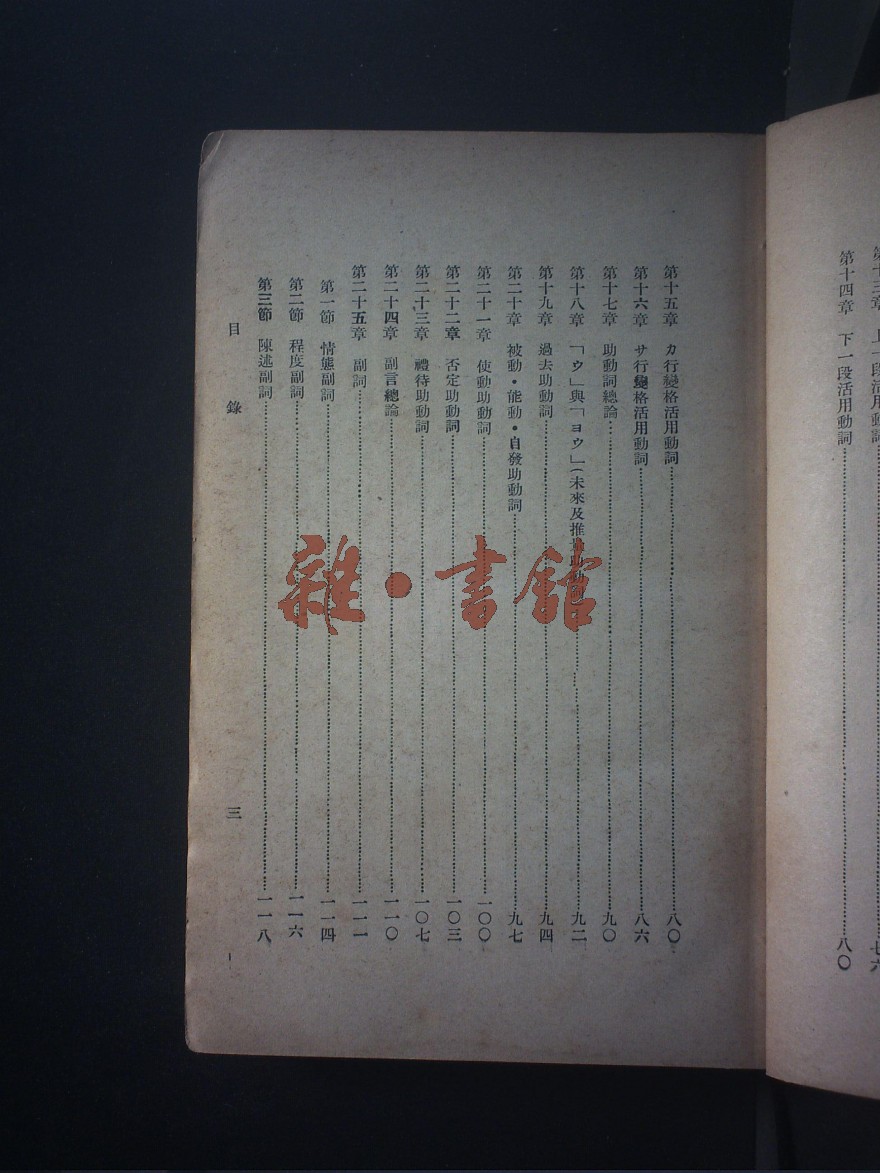 第十三章　上一段活用動詞……七六
第十四章　下一段活用動詞……八〇
第十五章　カ行變格活用動詞……八〇
第十六章　サ行變格活用動詞……八六
第十七章　助動詞總論……九〇
第十八章　「ウ」與「ヨウ」（未來及推量助動詞）……九二
第十九章　過去助動詞……九四
第二十章　被動・能動・自發助動詞……九七
第二十一章　使動助動詞……一〇〇
第二十二章　否定助動詞……一〇三
第二十三章　禮待助動詞……一〇七
第二十四章　副言總論……一一〇
第二十五章　副詞……一一一
第一節　情態副詞……一一四
第二節　程度副詞……一一六
第三節　陳述副詞……一一八
目錄　三
雜・書館